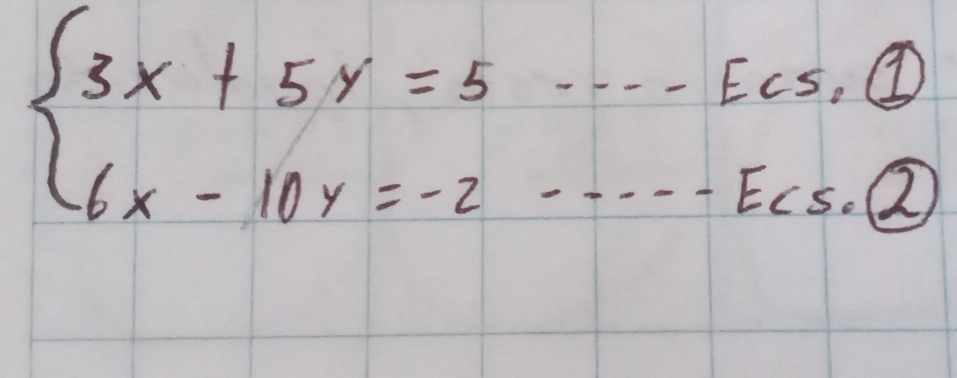 3x + 5y = 5 ---- Ecs. ①
6x - 10y = -2 ----- Ecs. ②